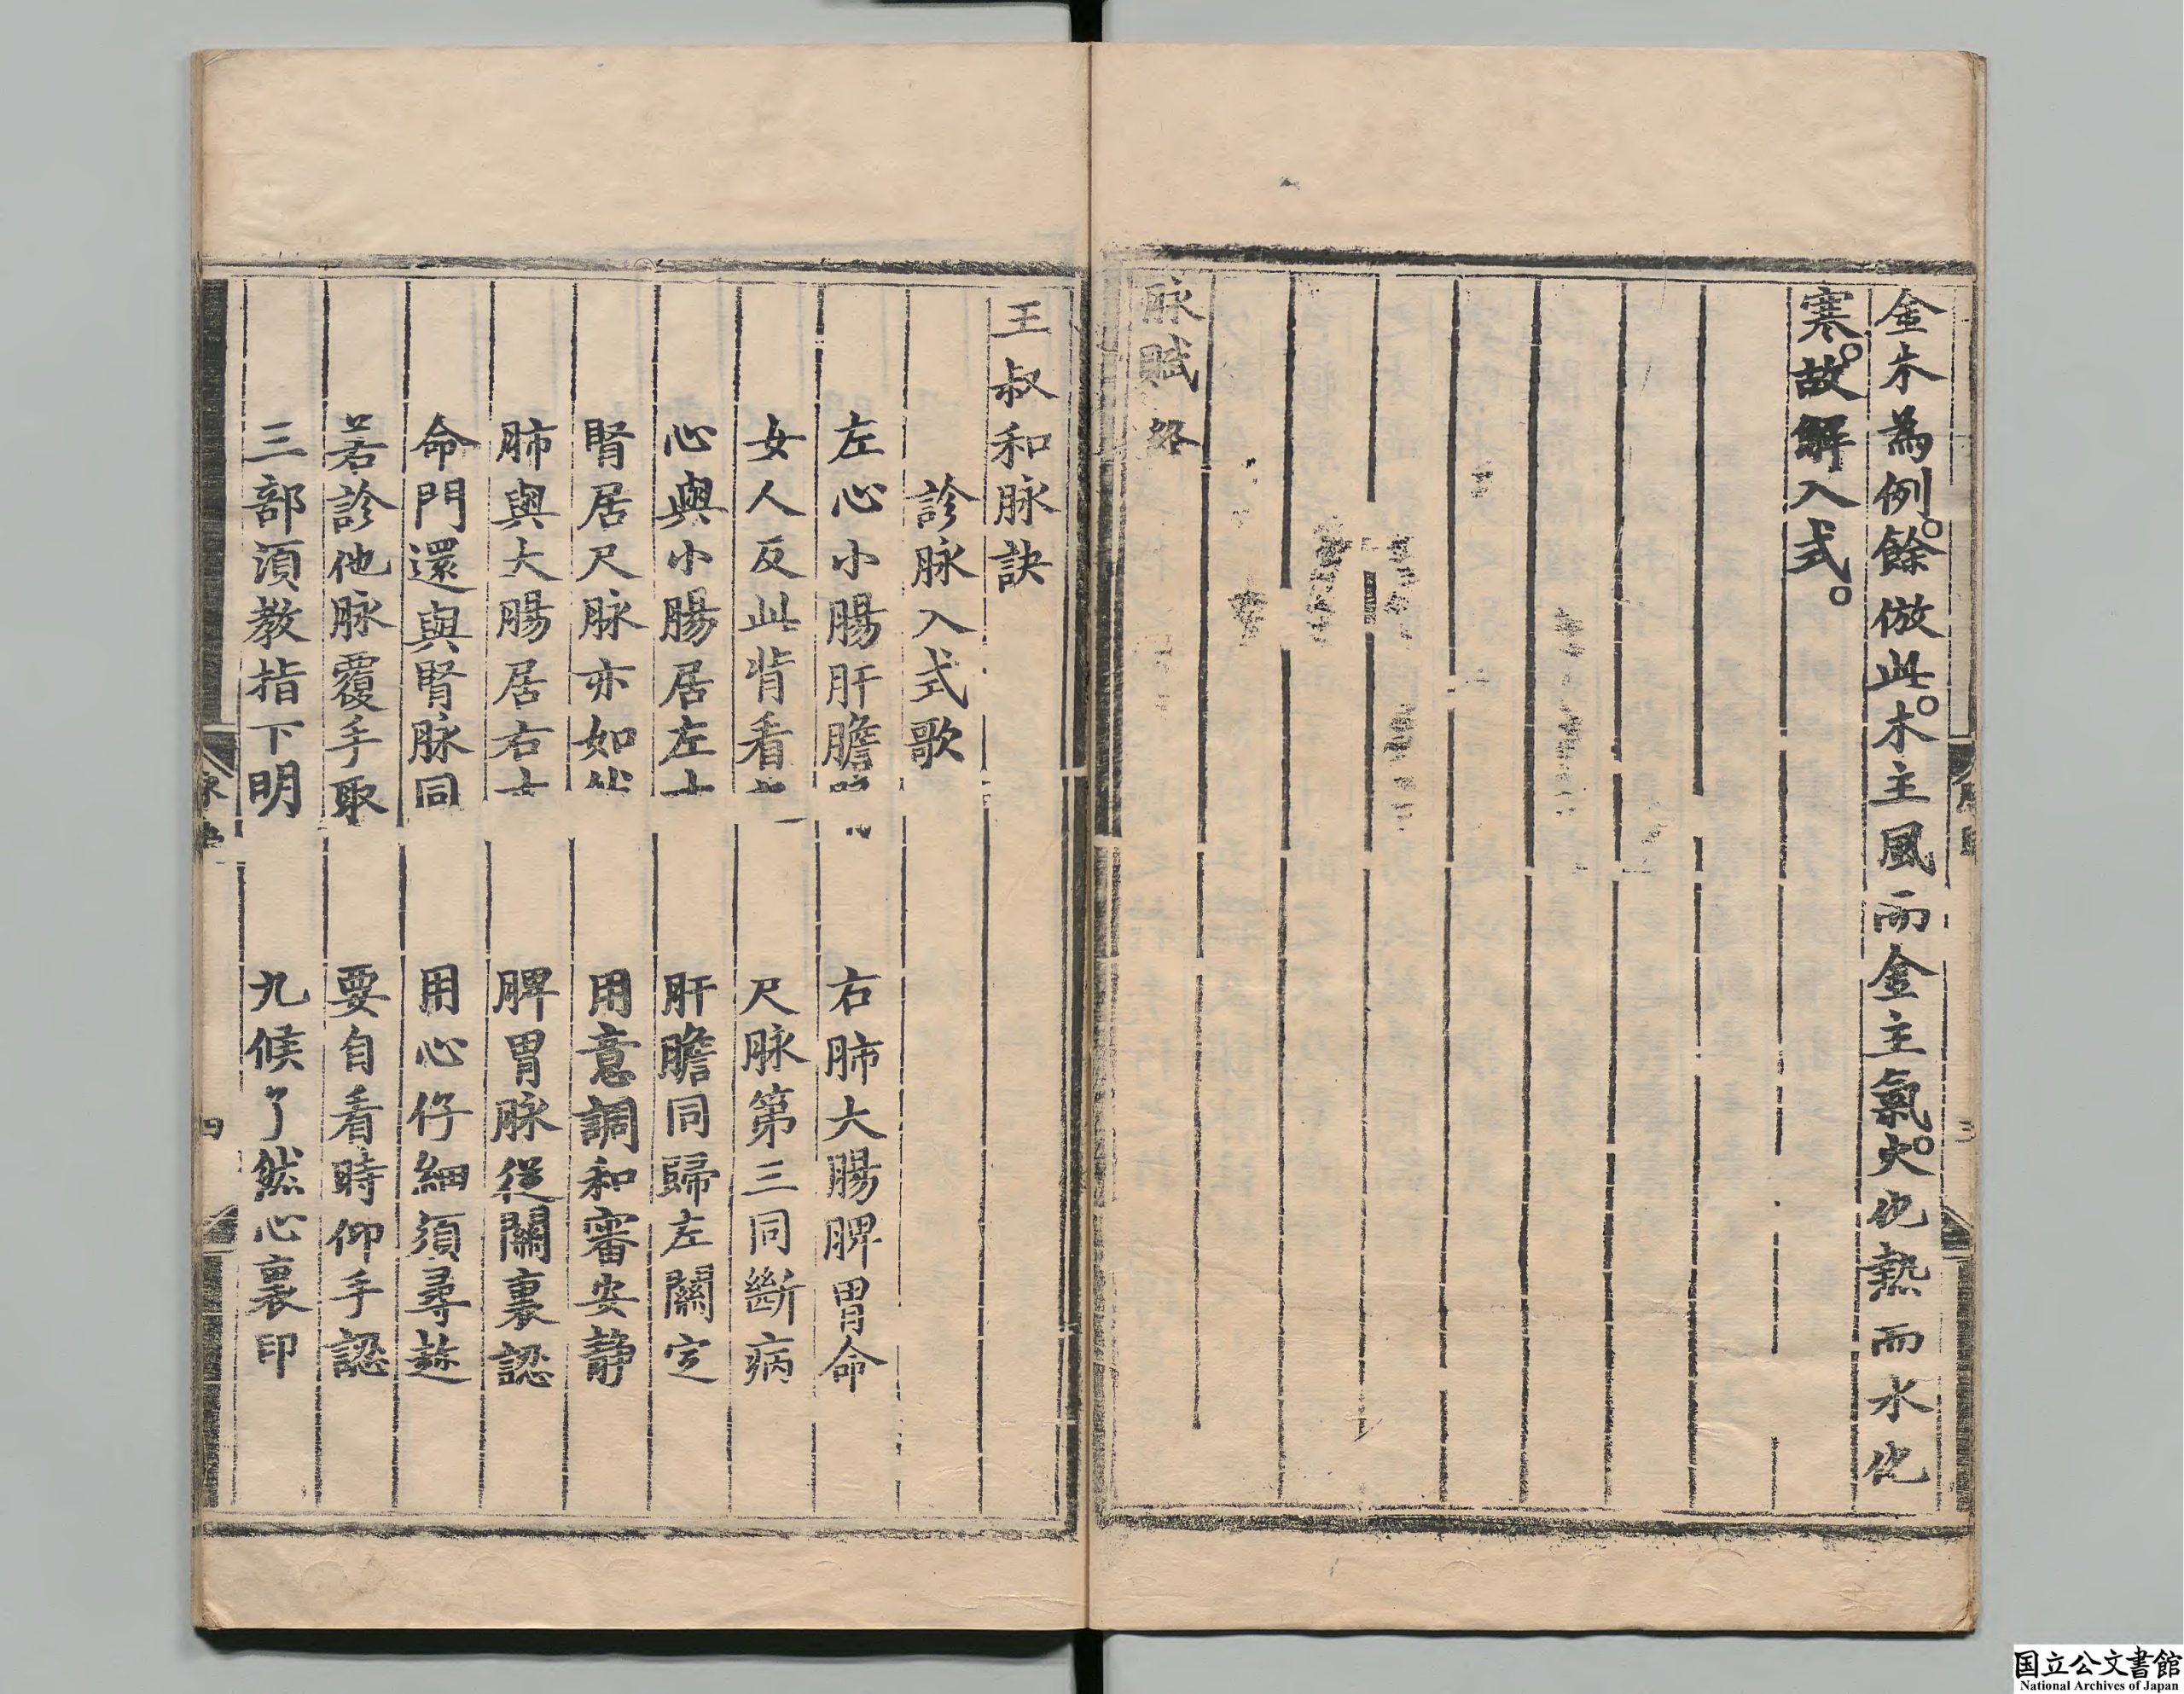 金木為例。餘倣此。木主風而金主氣。火也熱而水也
寒。故解入式。
脉賦終
王叔和脉訣
診脉入式歌
左心小腸肝膽 右肺大腸脾胃命
女人反此背看 尺脉第三同斷病
心與小腸居左 肝膽同歸左關定
腎居尺脉亦如 用意調和審安静
肺與大腸居右 脾胃脉從關裏認
命門還與腎脉同 用心仔細須尋趂
若診他脉覆手取 要自看時仰手認
三部須教指下明 九候了然心裏印
三
四
国立公文書館
National Archives of Japan